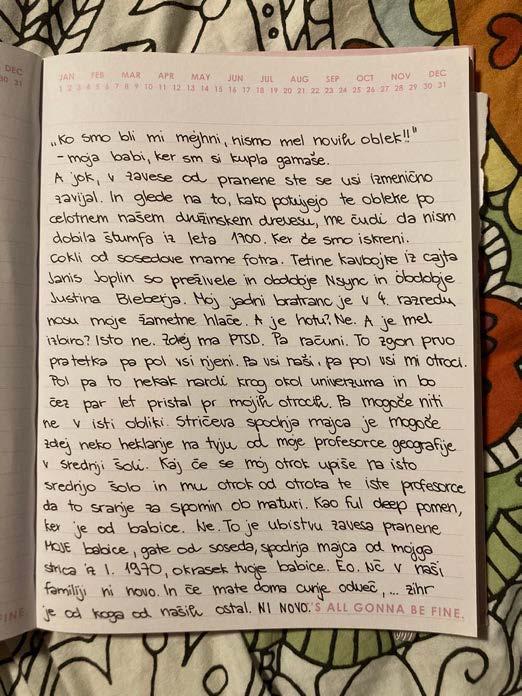 JAN FEB MAR APR MAY JUN JUL AUG SEP OCT NOV DEC
1 2 3 4 5 6 7 8 9 10 11 12 13 14 15 16 17 18 19 20 21 22 23 24 25 26 27 28 29 30 31
DEC
30 31
„Ko smo bli mi mejhni, nismo mel novih oblek!!"
- moja babi, ker sm si kupla gamaše.
A jok, v zavese od pranene ste se usi izmenično
zavijal. In glede na to, kako potujejo te obleke po
celotnem našem družinskem drevesu, me čudi da nism
dobila štumfa iz leta 1700. Ker če smo iskreni.
Cokli od sosedove mame fotra. Tetine kavbojke iz cajta
Janis Joplin so preživele in obdobje Nsync in obdobje
Justina Bieberja. Moj jadni bratranc je v 4. razredu
nosu moje žametne hlače. A je hotu? Ne. A je mel
izbiro? Isto ne. Zdej ma PTSD. Pa računi. To zgon prvo
pratetka pa pol vsi njeni. Pa vsi naši, pa pol vsi moji otroci.
Pol pa to nekak nardi krog okol univerzuma in bo
čez par let pristal pr mojih otrocih. Pa mogoče niti
ne v isti obliki. Stričeva spodnja majca je mogoče
zdej neko heklanje na tviju od moje profesorce geografije
v srednji šoli. Kaj če se moj otrok upiše na isto
srednjo šolo in mu otrok od otroka te iste profesorce
da to sranje za spomin ob maturi. Kao ful deep pomen,
ker je od babice. Ne. To je ubistvu zavesa pranene
MOJE babice, gate od soseda, spodnja majca od mojga
strica iz l. 1970, okrasek tvoje babice. Eo. Nč v naši
familiji ni novo. In če mate doma cunje odveč, ... zihr
je od koga od naših ostal. NI NOVO.'S ALL GONNA BE FINE.
FINE.